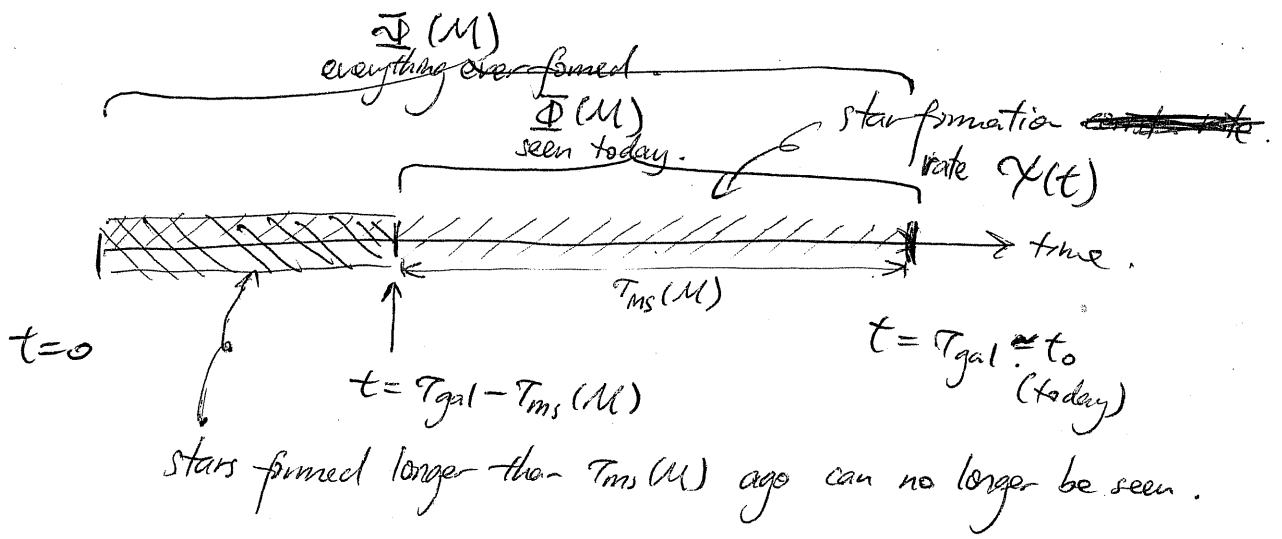 Φ̃ (M)
everything ever formed.
Φ (M)
seen today.
star formation
rate ψ(t)
time.
τms (M)
t=0
t = τgal − τms (M)
t = τgal ≃ t0
(today)
stars formed longer than τms (M) ago can no longer be seen.